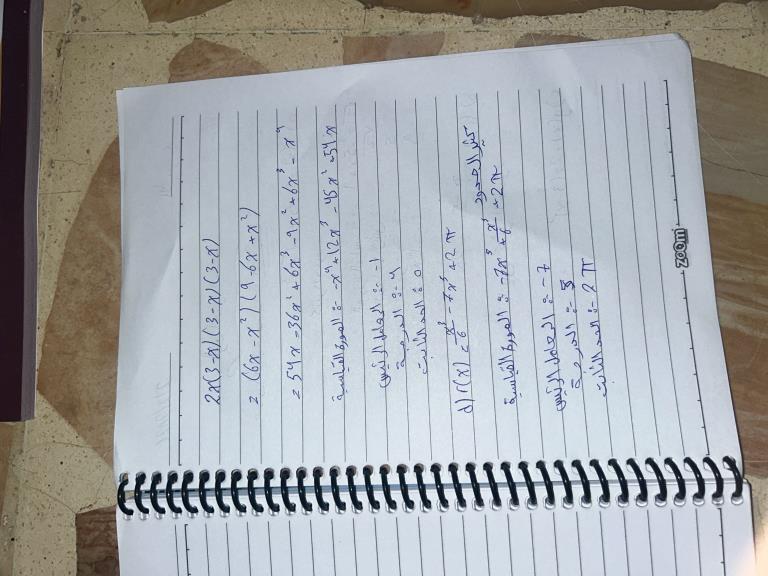 2x(3-x)(3-x)
= (6x - x²)(9 - 6x + x²)
= 54x - 36x² + 6x³ - 9x² + 6x³ - x⁴
الصورة القياسية : -x⁴ + 12x³ - 45x² + 54x
المعامل الرئيس : -1
الدرجة : 4
الحد الثابت : 0
d) r(x) = x³/6 - 7x⁵ + 2π كثير الحدود
الصورة القياسية : -7x⁵ + x³/6 + 2π
المعامل الرئيس : -7
الدرجة : 5
الحد الثابت : 2π
zoom